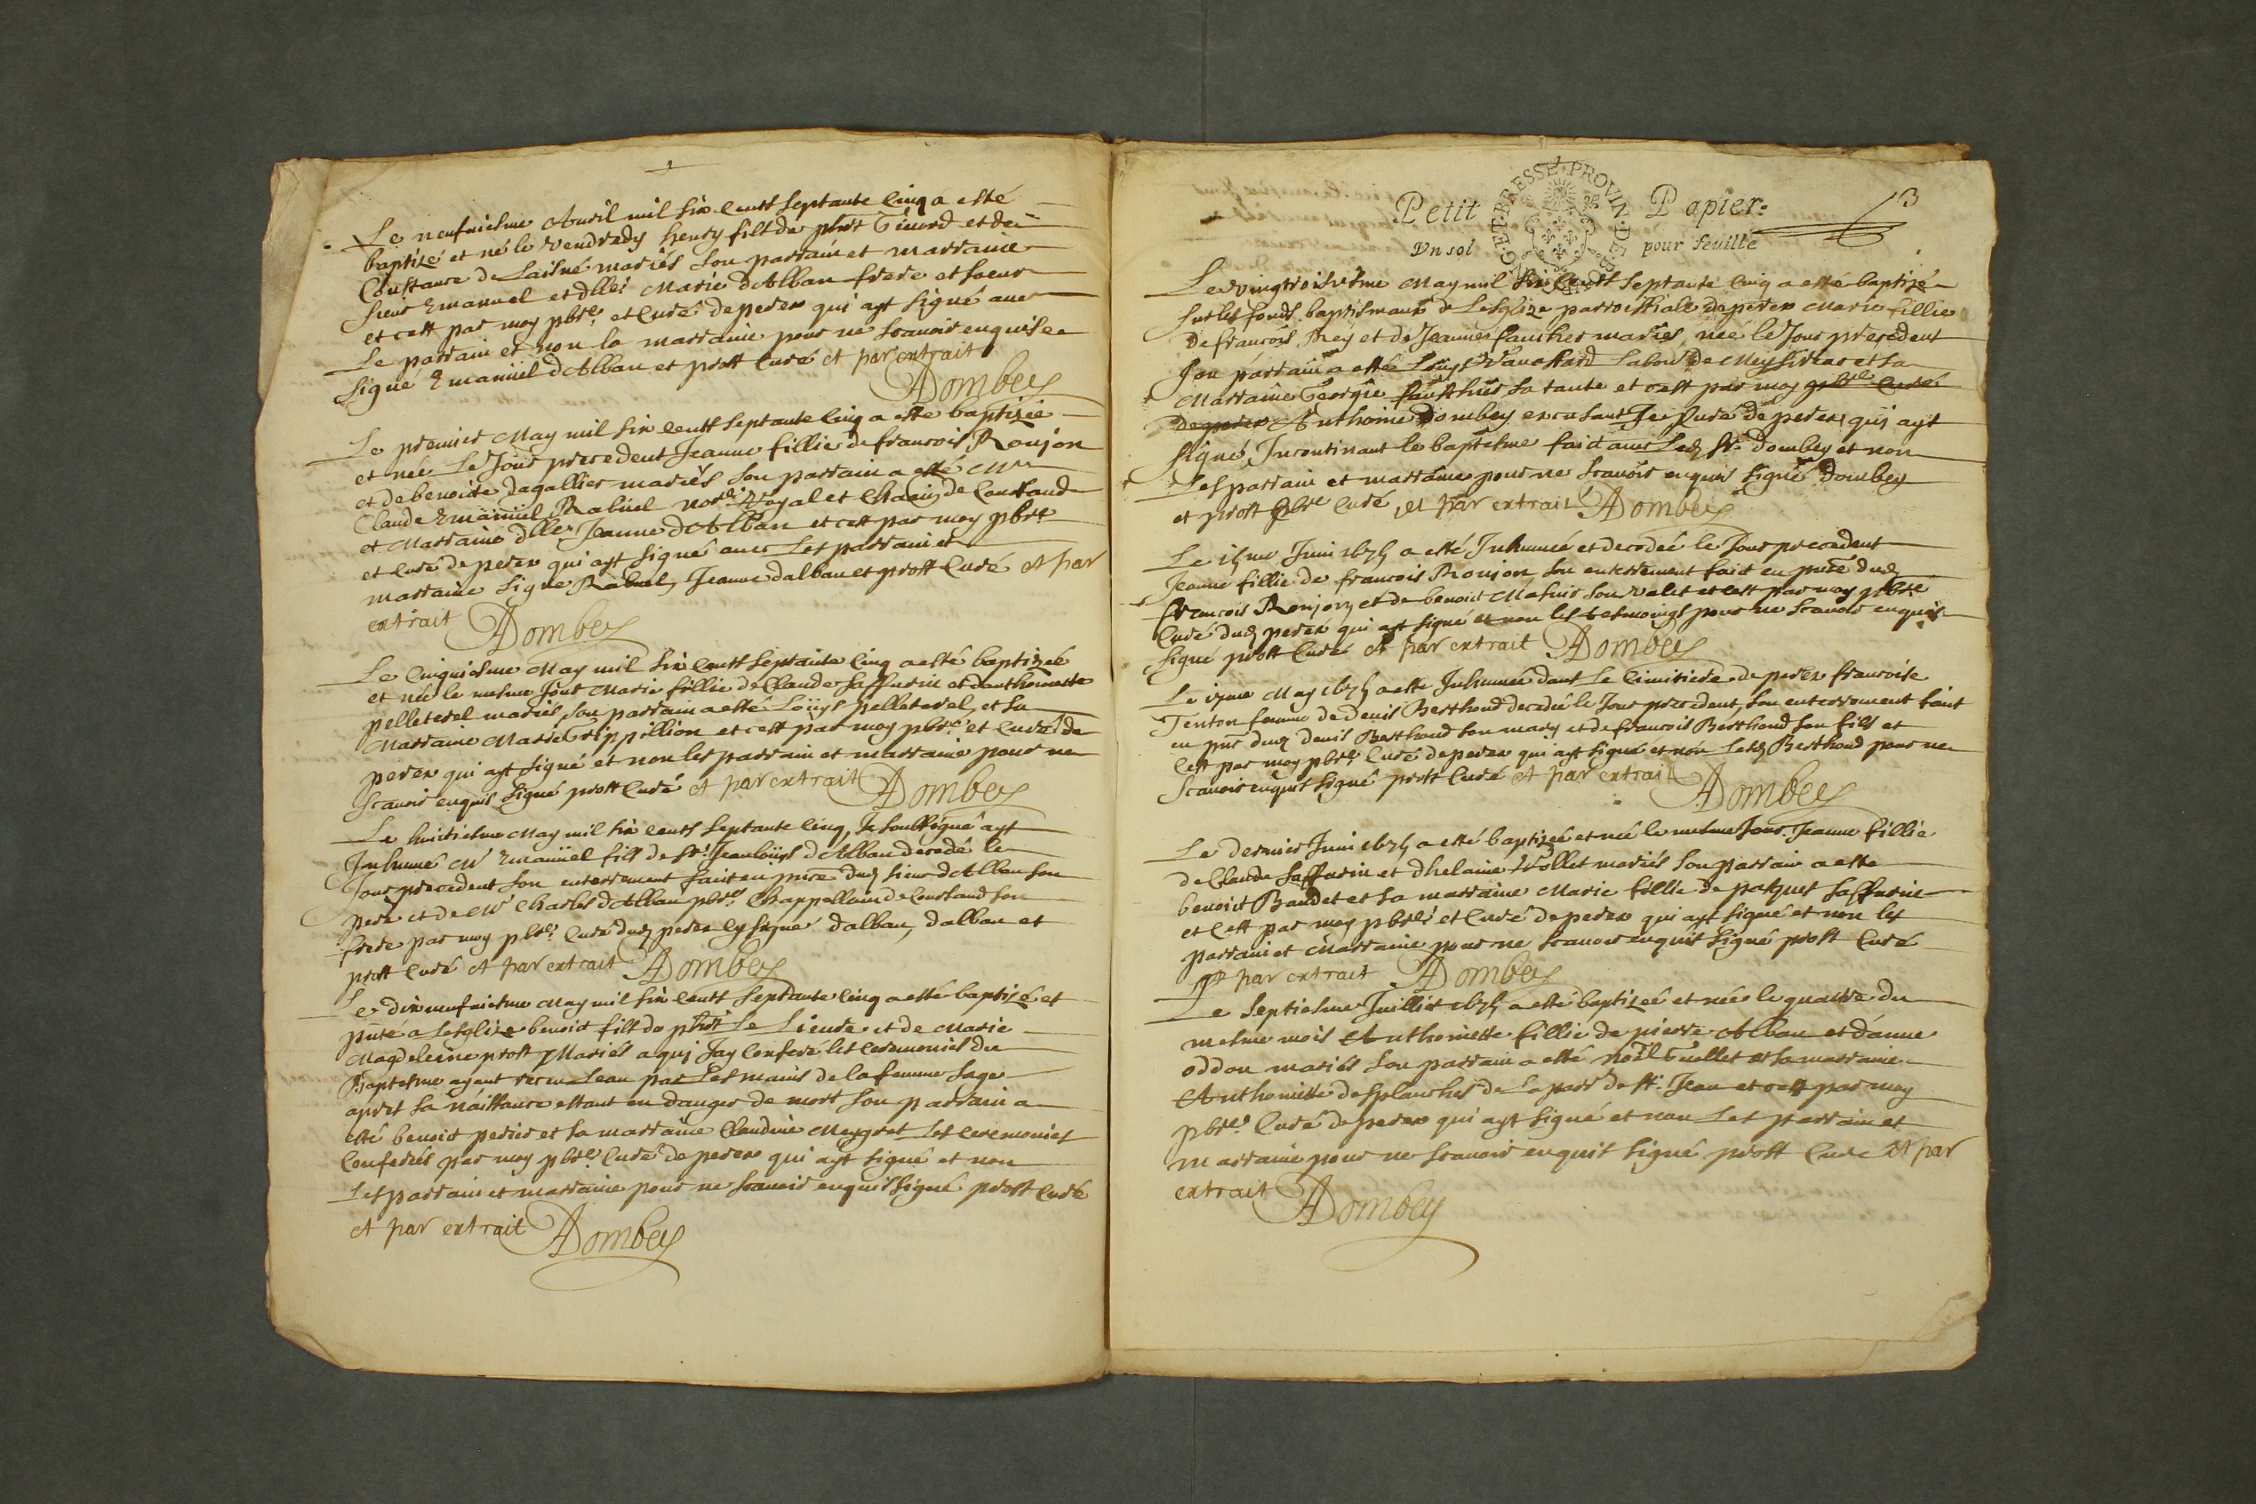 Le neufuiesme Auuril mil six centz septante cinq a esté
baptizé et né le vendredy henry filz de phrt Girord et de
Constance de Laisné mariés son parrain et marraine
sieur Emanuel et dlle Marie dAlban frere et soeur
et cest par moy pbre et Curé de perex qui ayt signé auec
Le parrain et non la marraine pour ne scauoir enquise
signé Emanüel dAlban et prost Curé et par extrait
ADombey
Le premier May mil six centz septante cinq a esté baptizée
et née Le Jour precedent Jeanne fillie de francois Roujon
et de benoite dagallier mariés son parrain a esté Mre
Claude Emanüel Rabüel Royal et de Constand
et Marraine dlle Jeanne dAlban et cest par moy pbre
et curé de perex qui ayt signé auec Les parrain et
marraine signé Rabuel, Jeanne dalban et prost Curé et par
extrait ADombey
Le Cinquiesme May mil six centz septante cinq a esté baptizée
et née le mesme Jour Marie fillie de Claude Saffurin et danthoinette
pelleterel mariés, son parrain a esté Loüys pelleterel, et sa
Marraine Marie pillion et cest par moy pbre et curé de
perex qui ayt signé et non les parrain et marraine pour ne
scauoir enquis signé prost Curé et par extrait ADombey
Le huitiesme May mil six centz septante cinq, Je soussigné ayt
Inhumé Mr Emanüel filz de Sr Jean loüys dAlban decedé le
Jour precedent son enterrement fait en pnce dud sieur dAlban son
pere et de Mr Charles dAlban pbre Chappellain de Constand son
frere par moy pbre Curé dud perex ey signé dalban, dalban et
prost Curé et par extrait ADombey
Le dix neufuiesme May mil six centz septante cinq a esté baptizé et
pnté a Lesglize benoit filz de phrt Le Lieure et de Marie
Magdeleine prost Mariés a qui Jay conferé les ceremonies du
Baptesme ayant receu Leau par Les mains de la femme sage
apres sa naissance estant en danger de mort son parrain a
esté benoit perier et sa marraine Claudine Meygret Les ceremonies
conferées par moy pbre Curé de perex qui ayt signé et non
Les parrain et marraine pour ne scauoir enquis signé prost Curé
et par extrait ADombey
Petit Papier.
Vn sol pour feuille
BOVRG·ET·BRESSE·PROVIN·DE
3
Le vingtroisiesme May mil six centz septante cinq a esté baptizé
sur les fondz baptismaux de Lesglize parrossiale de perex Marie fillie
de francois Rey et de Jeanne faucher mariés, née le Jour precedent
son parrain a esté Louys de Meyssiriat et sa
Marraine Georgie sa tante et cest par moy pbre Curé
de perex Anthoine Dombey Curé de perex qui ayt
signé, Incontinant le baptesme fait auec Led Sr Dombey et non
Les parrain et marraine pour ne scauoir enquis signé Dombey
et prost pbre Curé, et par extrait ADombey
Le Juin 1675 a esté Inhumée et decedée le Jour precedent
Jeanne fillie de francois Roujon, son enterrement fait en pnce dud
francois Roujon et de benoit son valet et cest par moy pbre
Curé dud perex qui ayt signé et non les tesmoings pour ne scauoir enquis
signé prost Curé et par extrait ADombey
Le May 1675 a esté Inhumée dans Le Cimitiere de perex francoise
Tenton femme de denis Berthoud decedée le Jour precedent, son enterrement fait
en pnce dud denis Berthoud son mary et de francois Berthoud son filz et
Cest par moy pbre Curé de perex qui ayt signé et non Lesd Berthoud pour ne
scauoir enquis signé prost Curé et par extrait ADombey
Le dernier Juin 1675 a esté baptizée et née le mesme Jour Jeanne fillie
de Claude Saffurin et dhelaine Vollet mariés son parrain a esté
benoist Baudet et sa marraine Marie fillie de paquet Saffurin
et Cest par moy pbre et Curé de perex qui ayt signé et non les
parrain et Marraine pour ne scauoir enquis signé prost Curé
et par extrait ADombey
Le septiesme Juillet 1675 a esté baptizée et née le quatre du
mesme mois Anthoinette fillie de pierre Alban et danne
oddon mariés son parrain a esté noël Guillet et sa marraine
Anthoinette desplanches de La parr de St Jean et cest par moy
pbre Curé de perex qui ayt signé et non Les parrain et
marraine pour ne scauoir enquis signé prost Curé et par
extrait ADombey